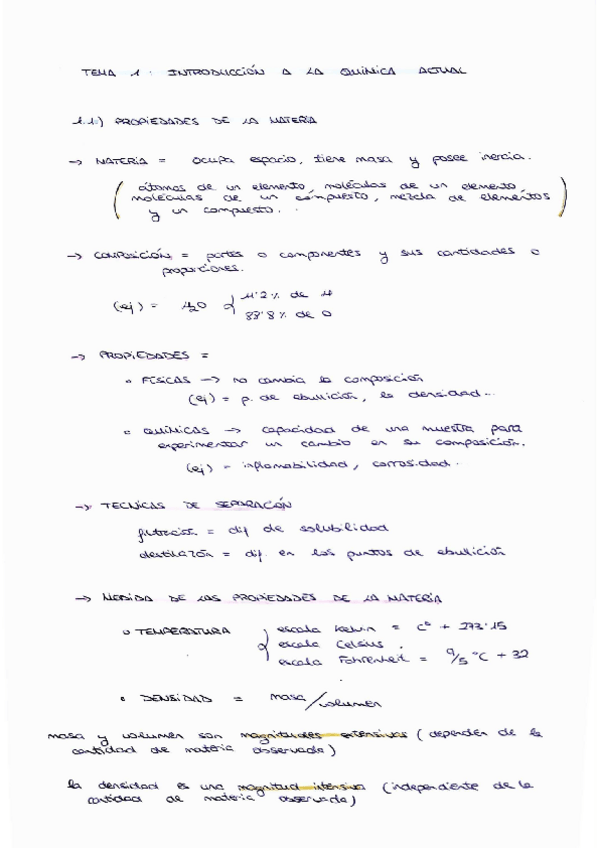 TEMA 1 : INTRODUCCIÓN A LA QUÍMICA ACTUAL
1.1.) PROPIEDADES DE LA MATERIA
→ MATERIA = ocupa espacio, tiene masa y posee inercia.
(átomos de un elemento, moléculas de un elemento,
moléculas de un compuesto, mezcla de elementos
y un compuesto.)
→ COMPOSICIÓN = partes o componentes y sus cantidades o
proporciones.
(ej) = H2O { 11'2 % de H
88'8 % de O
→ PROPIEDADES =
o FÍSICAS → no cambia la composición
(ej) = p. de ebullición, la densidad...
o QUÍMICAS → capacidad de una muestra para
experimentar un cambio en su composición.
(ej) = inflamabilidad, corrosidad.
→ TECNICAS DE SEPARACÓN
filtración = dif de solubilidad
destilazón = dif. en los puntos de ebullición
→ MEDIDA DE LAS PROPIEDADES DE LA MATERIA
o TEMPERATURA { escala Kelvin = Cº + 273'15
escala Celsius.
escala Fahrenheit = 9/5 ºC + 32
• DENSIDAD = masa/volumen
masa y volumen son magnitudes extensivas (dependen de la
cantidad de materia observada)
la densidad es una magnitud intensiva (independiente de la
cantidad de materia observada)